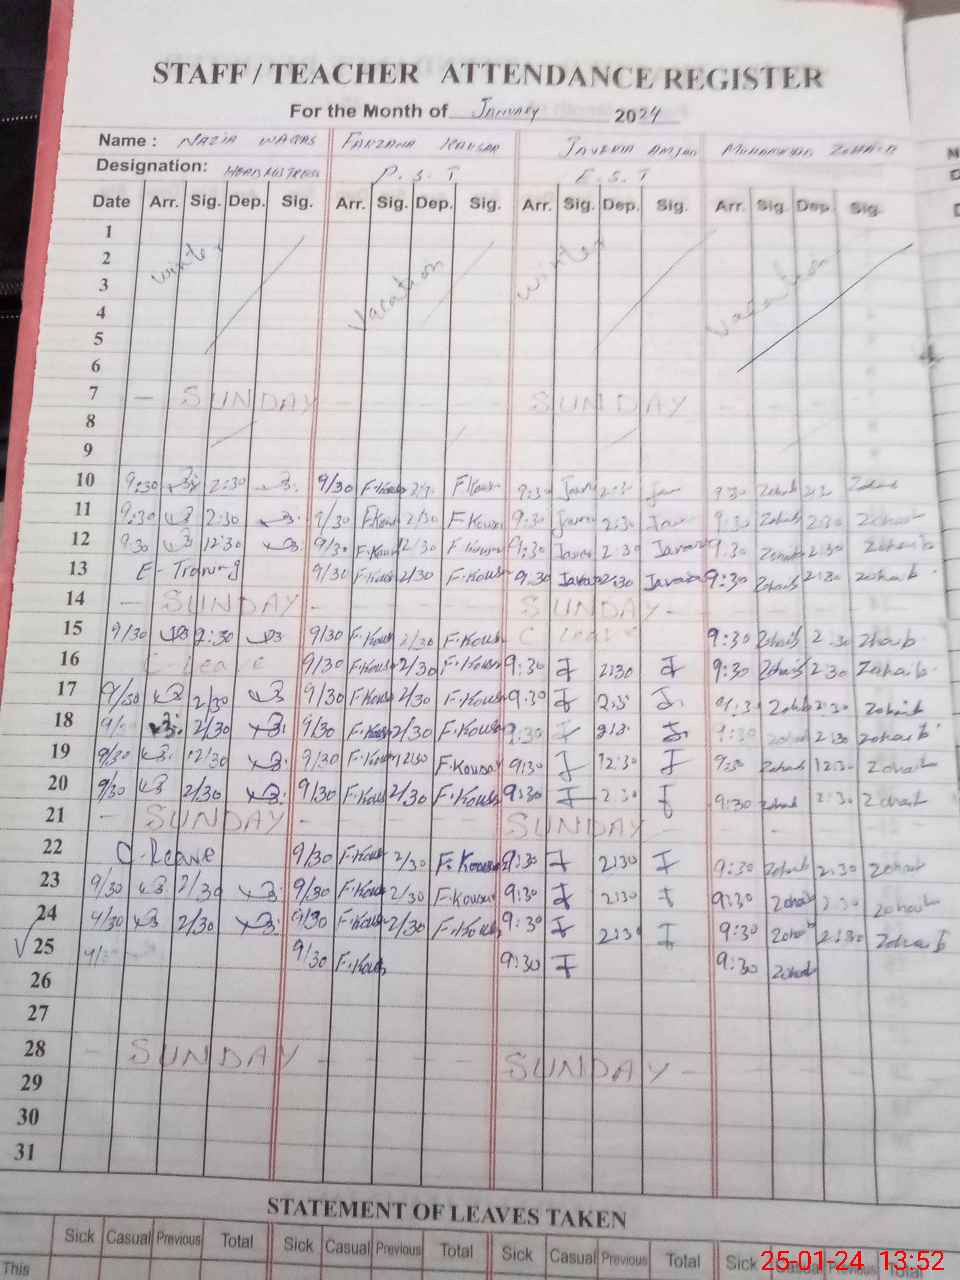 STAFF / TEACHER ATTENDANCE REGISTER
For the Month of January 2024
Name : NAZIA WAQAS FARZANA KOUSAR JAVERIA AMJAD MUHAMMAD ZOHAIB
Designation: HEADMISTRESS P.S.T E.S.T
Date Arr. Sig. Dep. Sig. Arr. Sig. Dep. Sig. Arr. Sig. Dep. Sig. Arr. Sig. Dep. Sig.
1
2 winter vacation winter vacation
3
4
5
6
7 - SUNDAY - - - - SUNDAY - - - -
8
9
10 9:30 2:30 9/30 F.Kous 2/30 F.Kous 9:30 2:30 9:30 Zohaib 2:30 Zohaib
11 9:30 2:30 9/30 F.Kous 2/30 F.Kous 9:30 2:30 9:30 Zohaib 2:30 Zohaib
12 9:30 12:30 9/30 F.Kous 12/30 F.Kous 9:30 2:30 9:30 Zohaib 2:30 Zohaib
13 E-Training 9/30 F.Kous 2/30 F.Kous 9:30 2:30 9:30 Zohaib 2:30 Zohaib
14 - SUNDAY - - - - - SUNDAY - - - -
15 9/30 2:30 9/30 F.Kous 2/30 F.Kous C leave 9:30 Zohaib 2:30 Zohaib
16 C-leave 9/30 F.Kous 2/30 F.Kous 9:30 J 2:30 J 9:30 Zohaib 2:30 Zohaib
17 9/30 2/30 9/30 F.Kous 2/30 F.Kous 9:30 J J 9:30 Zohaib 2:30 Zohaib
18 2/30 9/30 F.Kous 2/30 F.Kous 9:30 J J 9:30 Zohaib 2:30 Zohaib
19 9/30 12/30 9/30 F.Kous 12/30 F.Kousar 9:30 J 12:30 J 9:30 Zohaib 12:30 Zohaib
20 9/30 2/30 9/30 F.Kous 2/30 F.Kous 9:30 J 2:30 J 9:30 Zohaib 2:30 Zohaib
21 - SUNDAY - - - - SUNDAY - - - -
22 C.leave 9/30 F.Kous 2/30 F.Kousar 9:30 J 2:30 J 9:30 Zohaib 2:30 Zohaib
23 9/30 2/30 9/30 F.Kous 2/30 F.Kousar 9:30 J 2:30 J 9:30 Zohaib 2:30 Zohaib
24 9/30 2/30 9/30 F.Kous 2/30 F.Kous 9:30 J 2:30 J 9:30 Zohaib 2:30 Zohaib
25 9/30 F.Kous 9:30 J 9:30 Zohaib
26
27
28 - SUNDAY - - - - SUNDAY -
29
30
31
STATEMENT OF LEAVES TAKEN
Sick Casual Previous Total Sick Casual Previous Total Sick Casual Previous Total Sick Casual Previous Total
This
25-01-24 13:52